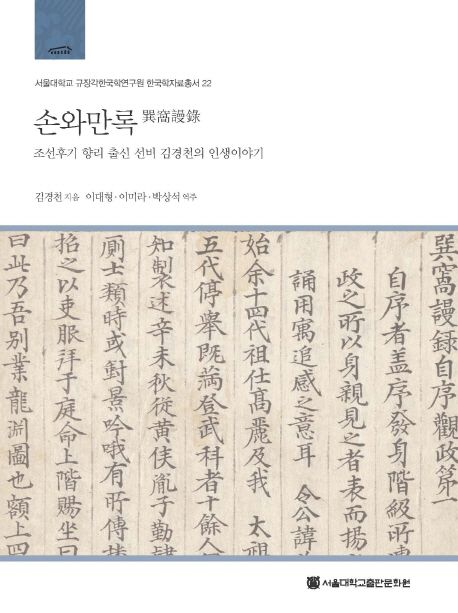 서울대학교 규장각한국학연구원 한국학자료총서 22
손와만록 巽窩謾錄
조선후기 향리 출신 선비 김경천의 인생이야기
김경천 지음 이대형·이미라·박상석 역주
巽窩謾録自序觀政第一
自序者盖序發身階級所傳
政之所以身親見之者表而揚
誦用寓追感之意耳 令公諱
始余十四代祖仕髙麗及我 太祖
五代停舉既藹登武科者十餘人
知製述辛未秋從黃侯胤子勤
廁士類時或對景吟哦有所傳
掐之以吏服拜于庭命上階賜坐曰
曰此乃吾别業龍淵圖也額上四
서울대학교출판문화원